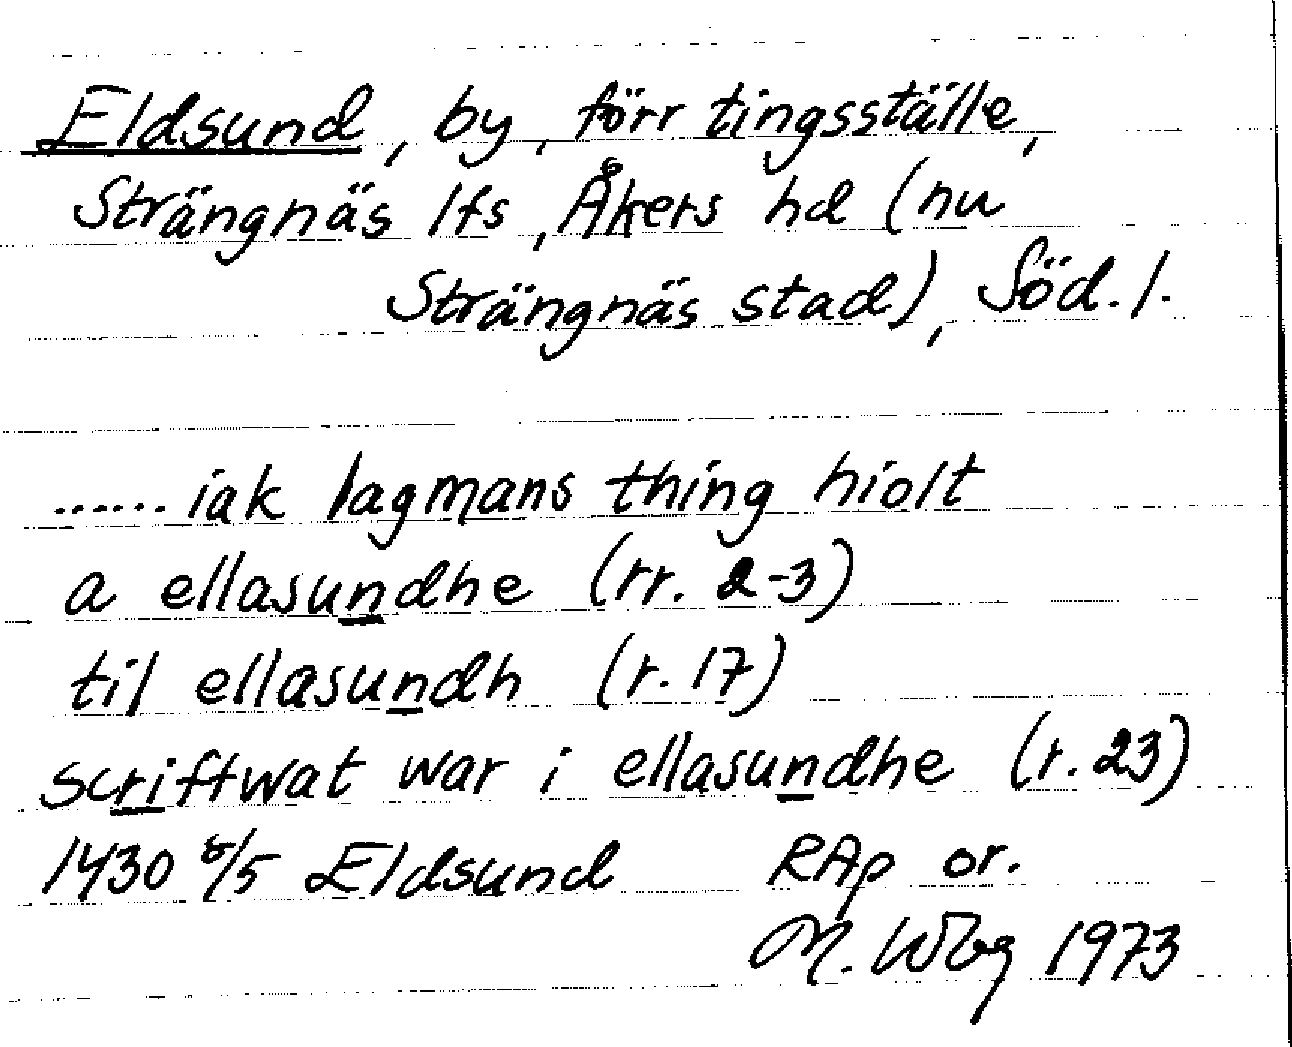 Eldsund, by, förr tingsställe,
Strängnäs lfs, Åkers hd (nu
Strängnäs stad), Söd. l.
...... iak lagmans thing hiolt
a ellasundhe (rr. 2-3)
til ellasundh (r. 17)
scriftwat war i ellasundhe (r. 23)
1430 6/5 Eldsund RAp or.
M. Wbg 1973